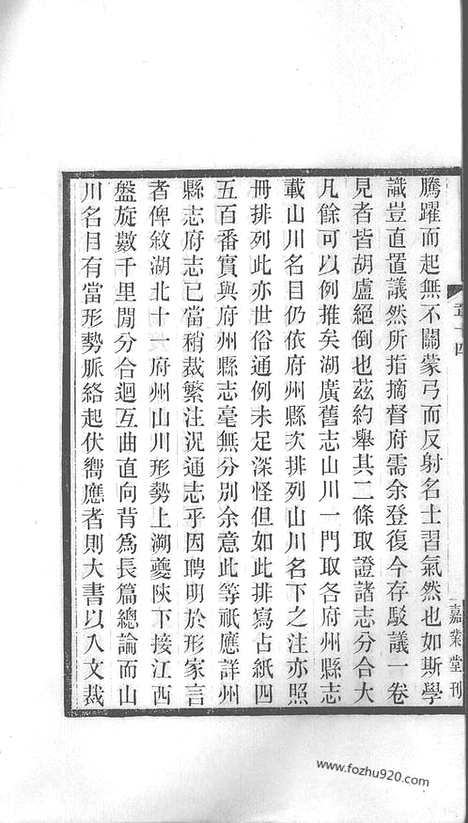 騰躍而起無不關蒙弓而反射名士習氣然也如斯學
識豈直置議然所指摘督府需余登復今存駁議一卷
見者皆胡盧絕倒也茲約舉其二條取證諸志分合大
凡餘可以例推矣湖廣舊志山川一門取各府州縣志
載山川名目仍依府州縣次排列山川名下之注亦照
冊排列此亦世俗通套未足深怪但如排寫占紙四
五百番實與府州縣志毫無分別余意此等祇應詳州
縣志府志已當稍裁繁注況通志乎因聘明於形家言
者俾敘湖北十一府州山川形勢上溯夔陝下接江西
盤旋數千里閒分合迴互曲直向背爲長篇總論而山
川名目有當形勢脈絡起伏嚮應者則大書以入文裁
嘉業堂刊
www.fozhu920.com